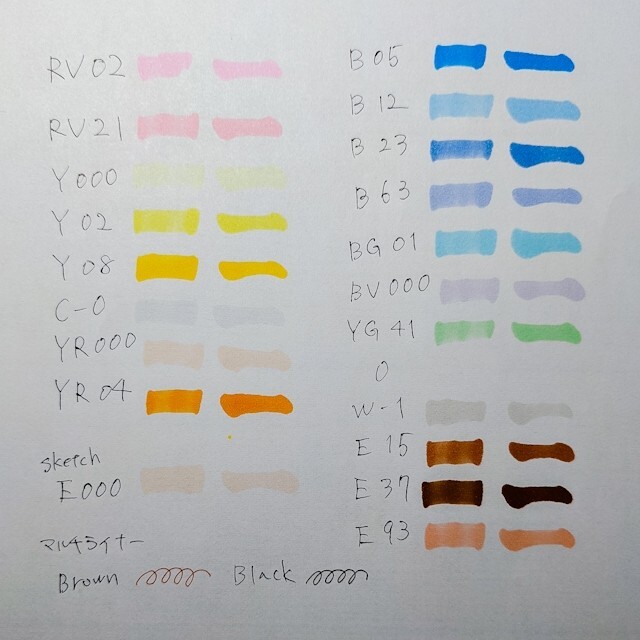 RV02
RV21
Y000
Y02
Y08
C-0
YR000
YR04
sketch
E000
マルチライナー
Brown Black
B05
B12
B23
B63
BG01
BV000
YG41
0
W-1
E15
E37
E93